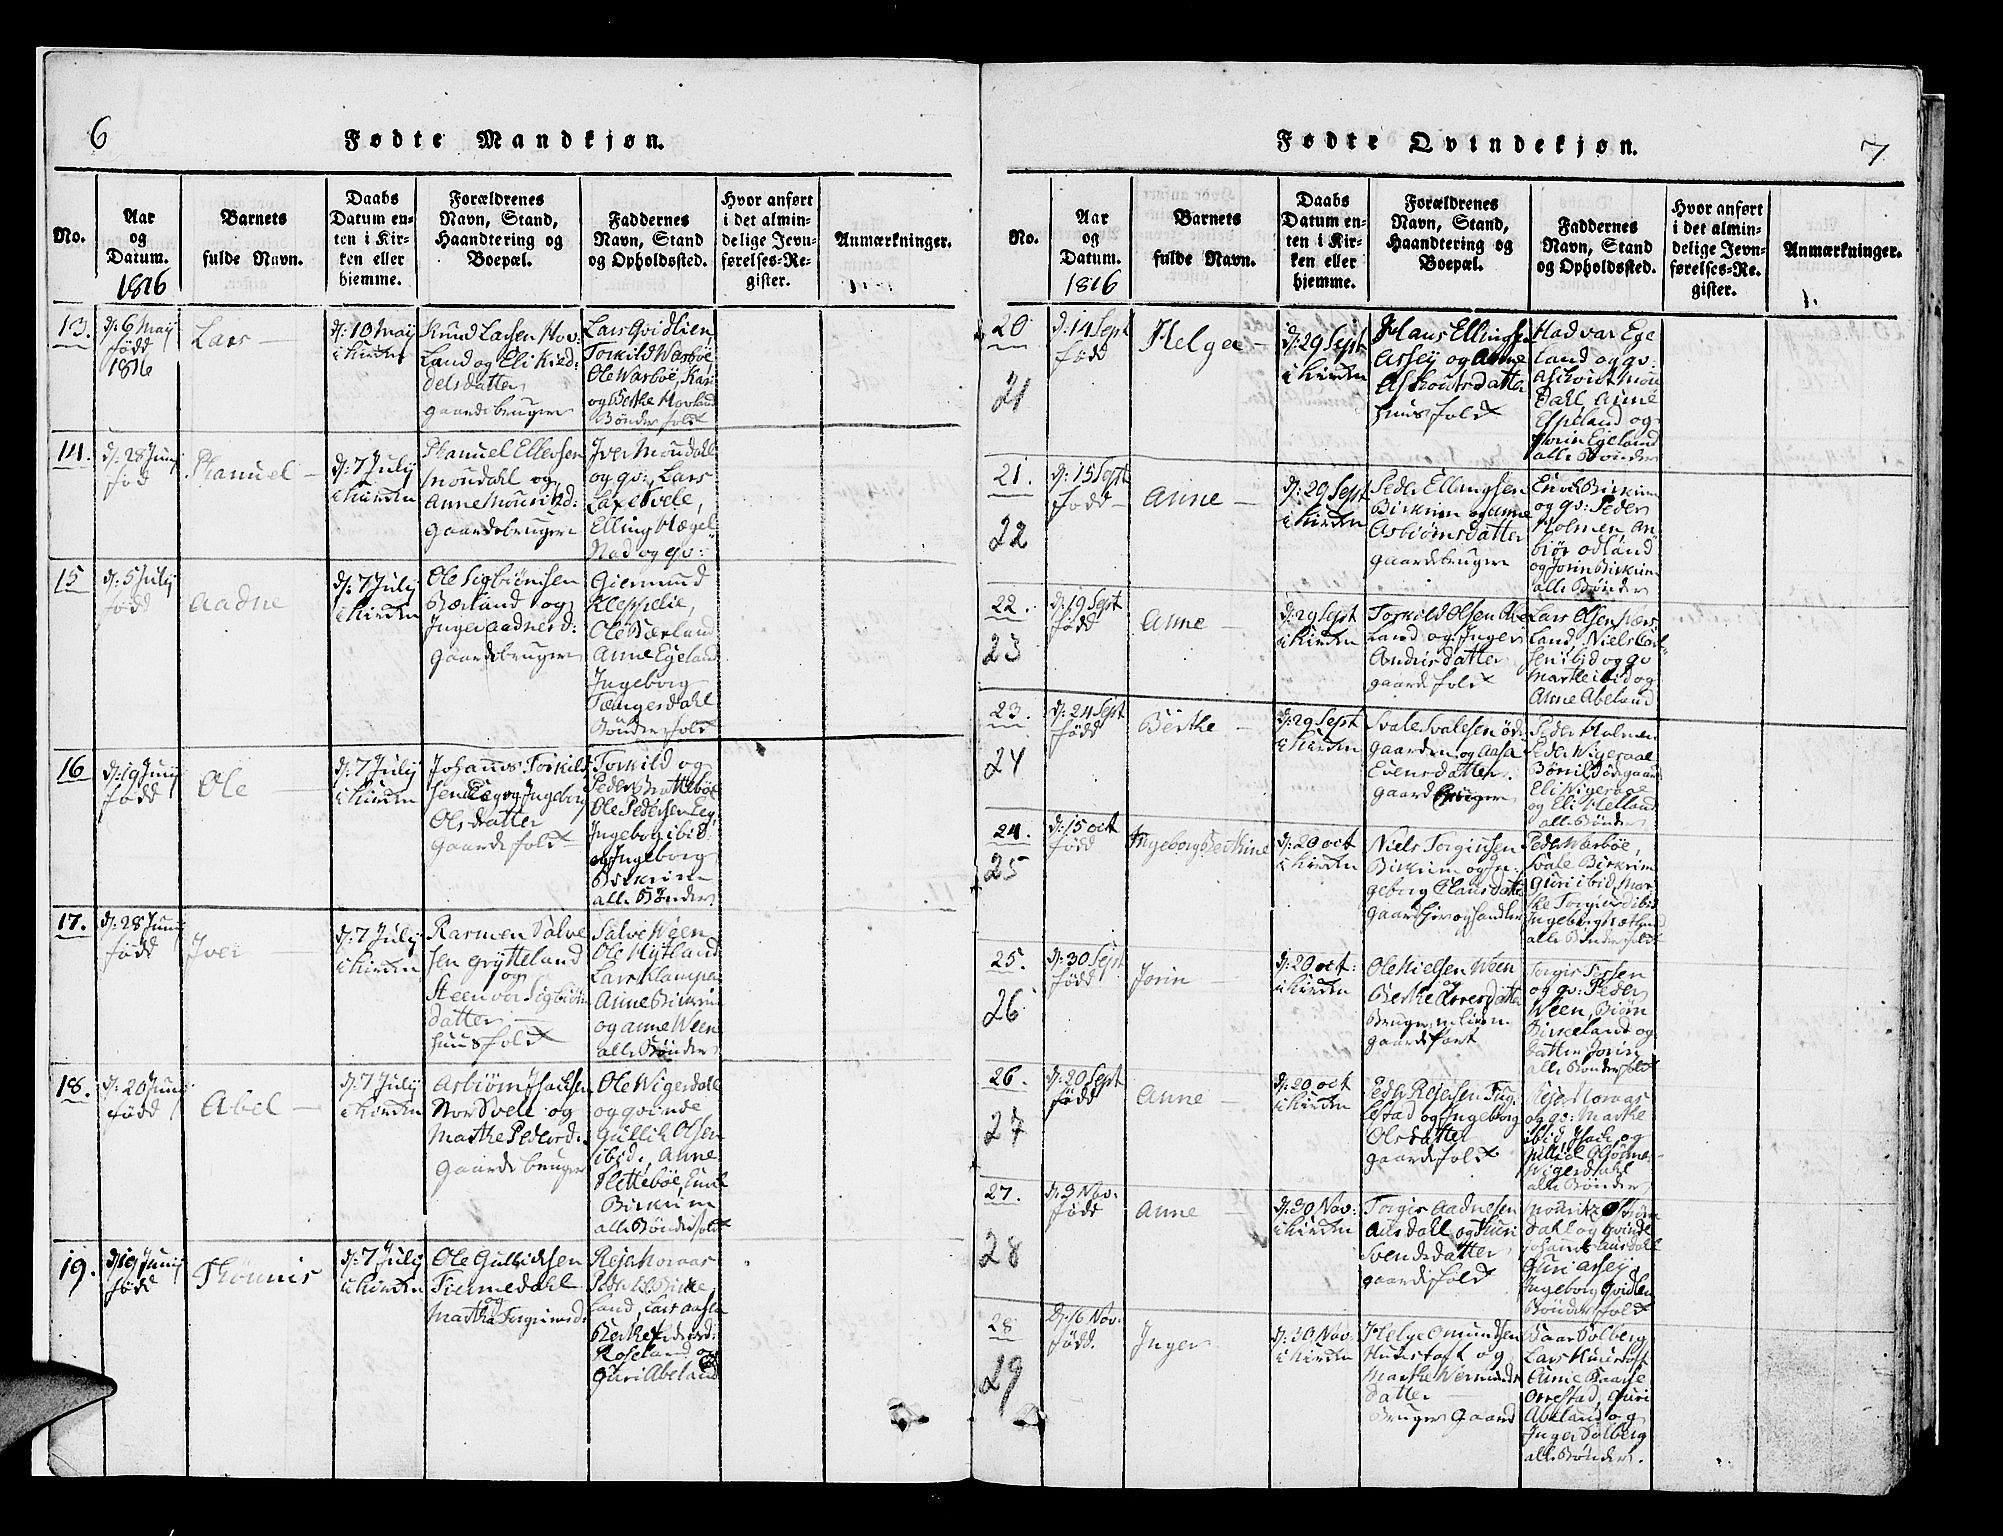 6
Fødte Mandkjøn.
No.
Aar
og
Datum.
1816
Barnets
fulde Navn.
Daabs
Datum en-
ten i Kir-
ken eller
hjemme.
Forældrenes
Navn, Stand,
Haandtering og
Boepæl.
Faddernes
Navn, Stand
og Opholdssted.
Hvor anført
i det almin-
delige Jevn-
førelses-Re-
gister.
Anmærkninger.
13.
d: 6 Maij
født
1816
Lars
d: 10 Maij
i Kirken
Knud Larsen Hov-
land og Eli Kied-
delsdatter
gaardebrugere
Lars Qvidlien,
Torkild Warbøe,
Ole Warbøe, Kari
og Berthe Hovland
Bønderfolk
14.
d: 28 Junij
fød
Thanuel
d: 7 Julij
i Kirken
Thanuel Ellevsen
Moudahl og
Anne Mouri
gaardebrugere
Iver Moudahl
og qv:, Lars
Laxesvele,
Elling Hægel-
stad og qv:
15
d: 5 Julij
født
Aadne
d: 7 Julij
i Kirken
Ole Sigbiørnsen
Bærland og
Inger Aadnesd:
gaardebrugere
Giermund
Kleppelie,
Ole Bærland
Anne Egeland
Ingeborg
Tængersdahl
Bønderfolk
16
d: 19 Junij
født
Ole
d: 7 Julij
i Kirken
Johannes Torkild-
sen Eeg og Ingeborg
Olsdatter
gaardefolk
Torkild og
Peder Brattebøe
Ole Pedersen Eeg,
Ingeborg ibid:
og Ingeborg
Birkrim
alle Bønder
17.
d: 28 Junij
født
Iver
d: 7 Julij
i Kirken
Rasmen Salve
sen Grytteland
og
Steenvor Sigbiørns
datter
huusfolk
Salve Ween
Ole Myteland
Lars Klampa
Anne Birkrim
og Anne Ween
alle Bønder
18.
d: 20 Junij
født
Abel
d: 7 Julij
i Kirken
Asbiørn Isachsen
Nordsvele og
Marthe Pedersd:
gaardebruger
Ole Wigesdal
og qvinde
Gullik Olsen
ibid:, Anne
Plettebøe,
Birkrim
alle Bønderfolk
19.
d: 19 Junij
født
Thønnis
d: 7 Julij
i Kirken
Ole Gullichsen
Tiermedahl
og
Martha Torgiersd:
Reja Horaas
Peder Birke
land, Lars
Berthe
Roseland og
Guri Abeland
7
Fødte Qvindekjøn.
No.
Aar
og
Datum.
1816
Barnets
fulde Navn.
Daabs
Datum en-
ten i Kir-
ken eller
hjemme.
Forældrenes
Navn, Stand,
Haandtering og
Boepæl.
Faddernes
Navn, Stand
og Opholdssted.
Hvor anført
i det almin-
delige Jevn-
førelses-Re-
gister.
Anmærkninger.
20
21
d: 14 Sept
født
Helga
d: 29 Sept
i Kirken
Hans Ellingsen
Assey og Anne
Askoutsdatter
huusfolk
Hadvar Ege
land og qv:
Asilvint Mou
dahl Anne
Espeland og
Jorin Egeland
alle Bønder
21.
22
d: 15 Sept
født
Anne
d: 29 Sept
i Kirken
Peder Ellingsen
Birkrim og Anne
Asbiørnsdatter
gaardbrugere
Enok Birkrim
og qv: Peder
Holmen, An-
biør Odland
og Jorin Birkrim
alle Bønder
22.
23
d: 19 Sept
født
Anne
d: 29 Sept
i Kirken
Torkild Olsen Abe
land og Inger
Andersdatter
gaardefolk
Lars Olsen Hers
land, Niels
sen ibid og qv
Marthe ibid og
Anne Abeland
23.
24
d: 24 Sept
født
Berthe
d: 29 Sept
i Kirken
Svale Svalesen Øde
gaarden og Aasa
Evensdatter
gaardbruger
Peder Holmen
Peder Wigeraae
Børril Ødegaard
Eli Wigeraae
og Eli Helland
alle Bønder
24.
25
d: 15 oct
født
Ingeborg Berthine
d: 20 oct
i Kirken
Niels Torgiersen
Birkrim og In-
geborg Clausdatter
gaard og handler
Peder Warbøe,
Svale Birkrim
Guri ibid, Mar
the Torgierd ibid
Ingeborg Sætlund
alle Bønderfolk
25.
26
d: 30 Sept
født
Jorin
d: 20 oct:
i Kirken
Ole Nielsen Ween
og
Berthe Orresdatter
Bruger en liden
gaardspart
Torgis Tørsen
og qv: Peder
Ween, Biørn
Birkeland og
datter Jorin
alle Bønderfolk
26.
27
d: 20 Sept
født
Anne
d: 20 oct
i Kirken
Peder Rejersen Fug
lestad og Ingeborg
Olsdatter
gaardefolk
Rejer Horaas
og qv: Marthe
ibid Isach og
Wigersdahl
alle Bønder
27.
28
d: 3 Nov:
født
Anne
d: 30 Nov:
i Kirken
Torgis Aadnesen
Ausdahl og Guri
Svendsdatter
gaardefolk
Mourits
dahl og qvinde
Johannes Ausdahl
Guri Assey
Ingeborg Qvidlen
Bønderfolk
28
29
d: 16 Nov:
født.
Inger
d: 30 Nov:
i Kirken
Helge Omundsen
Huustoft og
Marthe Wermunds
datter
Bruger Gaard
Baar Solberg
Lars Huustoft
Anne Baarse
Orrestad, Guri
Abeland og
Inger Solberg
alle Bønder.